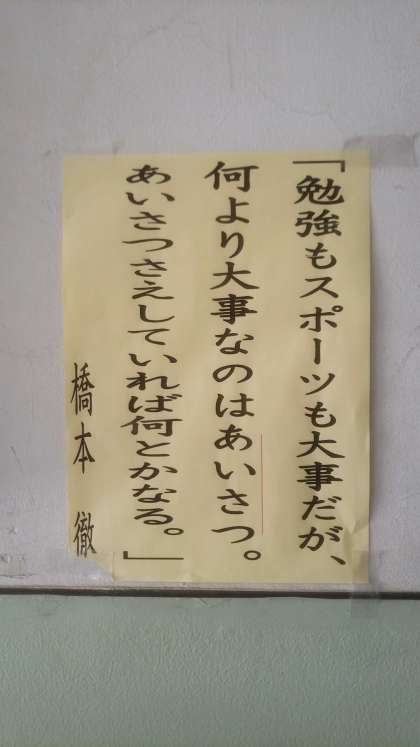 「勉強もスポーツも大事だが、
何より大事なのはあいさつ。
あいさつさえしていれば何とかなる。」
橋本 徹